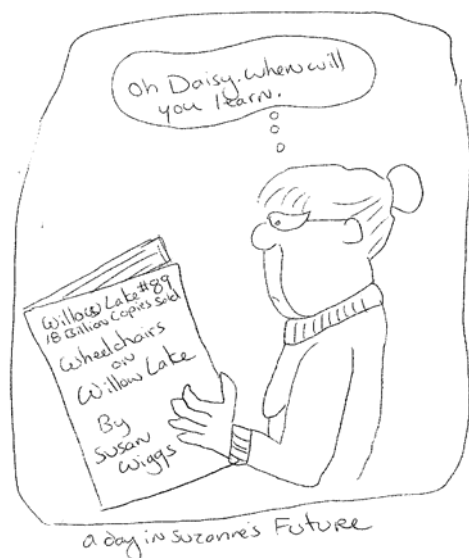 Oh Daisy. When will
you learn.
Willow Lake #89
18 Billion Copies Sold
Wheelchairs
on
Willow Lake
By
Susan
Wiggs
a day in Suzanne's Future